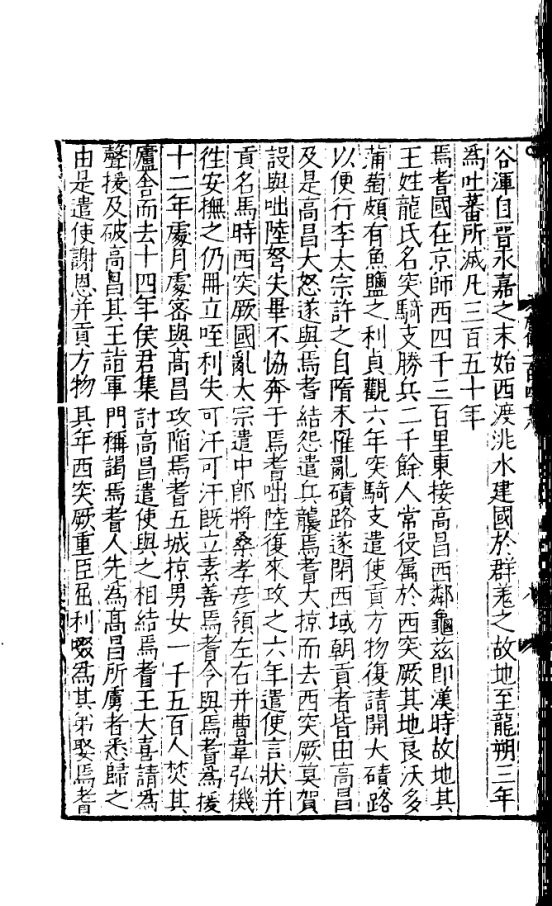 谷渾自晉永嘉之末始西渡洮水建國於群羗之故地至龍朔三年
爲吐蕃所滅凡三百五十年
焉耆國在京師西四千三百里東接高昌西鄰龜兹即漢時故地其
王姓龍氏名突騎支勝兵二千餘人常役属於西突厥其地良沃多
蒲萄頗有魚鹽之利貞觀六年突騎支遣使貢方物復請開大磧路
以便行李太宗許之自隋末罹亂磧路遂閉西域朝貢者皆由高昌
及是高昌大怒遂與焉耆結怨遣兵襲焉耆大掠而去西突厥莫賀
設與咄陸弩失畢不恊奔于焉耆咄陸復來攻之六年遣使言狀并
貢名馬時西突厥國亂太宗遣中郎將桑孝彦領左右并曹韋弘機
徃安撫之仍冊立咥利失可汗可汗既立素善焉耆令與焉耆爲援
十二年處月處密與高昌攻陷焉耆五城掠男女一千五百人焚其
廬舍而去十四年侯君集討高昌遣使與之相結焉耆王大喜請爲
聲援及破高昌其王詣軍門稱謁焉耆人先爲高昌所虜者悉歸之
由是遣使謝恩并貢方物其年西突厥重臣屈利啜爲其弟娶焉耆